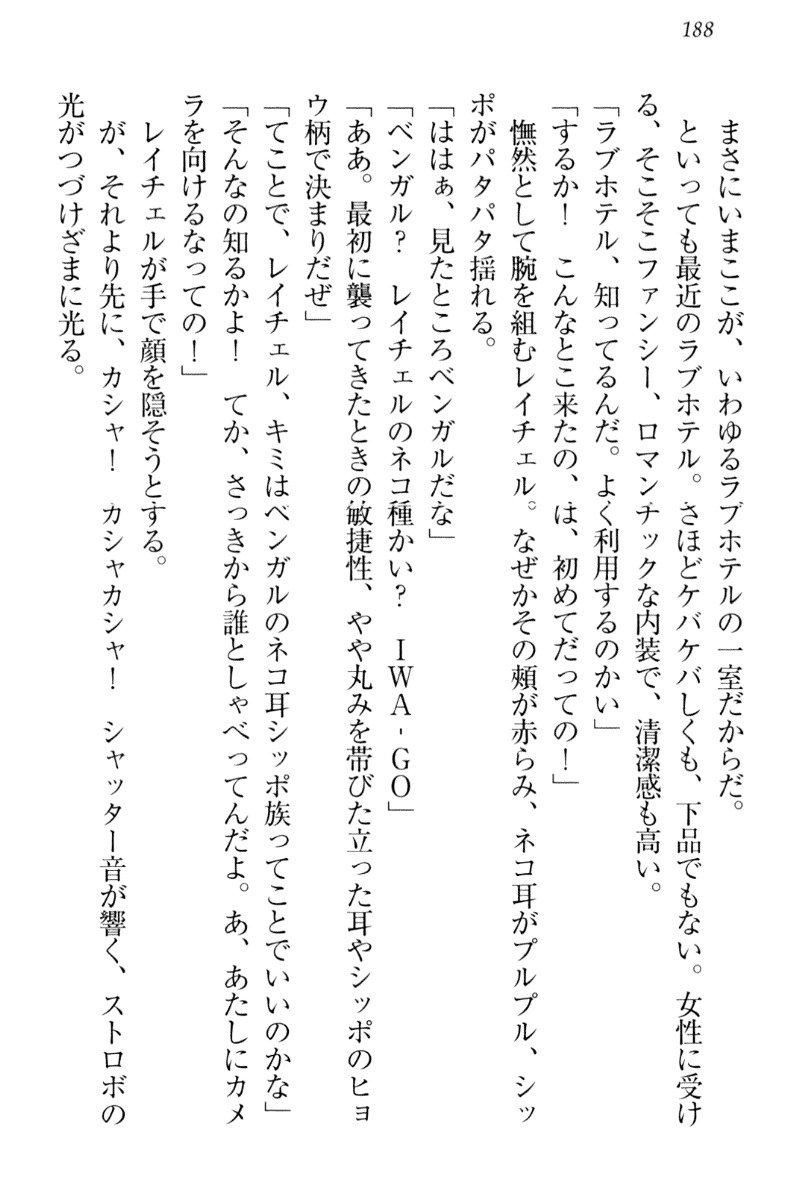 188
まさにいまここが、いわゆるラブホテルの一室だからだ。
といっても最近のラブホテル。さほどケバケバしくも、下品でもない。女性に受け
る、そこそこファンシー、ロマンチックな内装で、清潔感も高い。
「ラブホテル、知ってるんだ。よく利用するのかい」
「するか！　こんなとこ来たの、は、初めてだっての！」
憮然として腕を組むレイチェル。なぜかその頰が赤らみ、ネコ耳がプルプル、シッ
ポがパタパタ揺れる。
「ははぁ、見たところベンガルだな」
「ベンガル？　レイチェルのネコ種かい？　ＩＷＡ‐ＧＯ」
「ああ。最初に襲ってきたときの敏捷性、やや丸みを帯びた立った耳やシッポのヒョ
ウ柄で決まりだぜ」
「てことで、レイチェル、キミはベンガルのネコ耳シッポ族ってことでいいのかな」
「そんなの知るかよ！　てか、さっきから誰としゃべってんだよ。あ、あたしにカメ
ラを向けるなっての！」
レイチェルが手で顔を隠そうとする。
が、それより先に、カシャ！　カシャカシャ！　シャッター音が響く、ストロボの
光がつづけざまに光る。